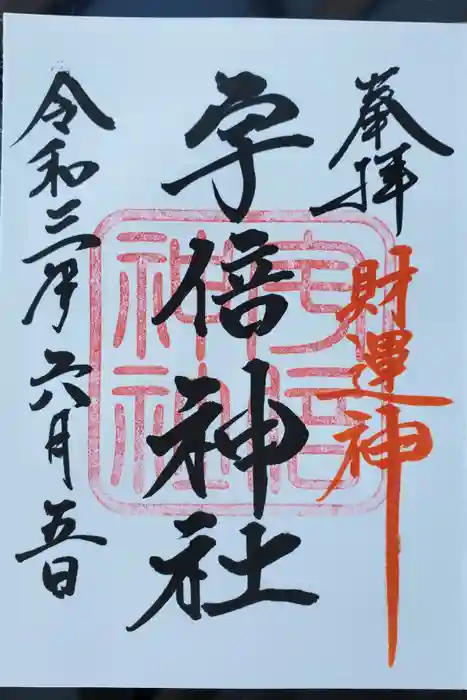 奉拝
財運神
宇倍神社
令和三年六月五日